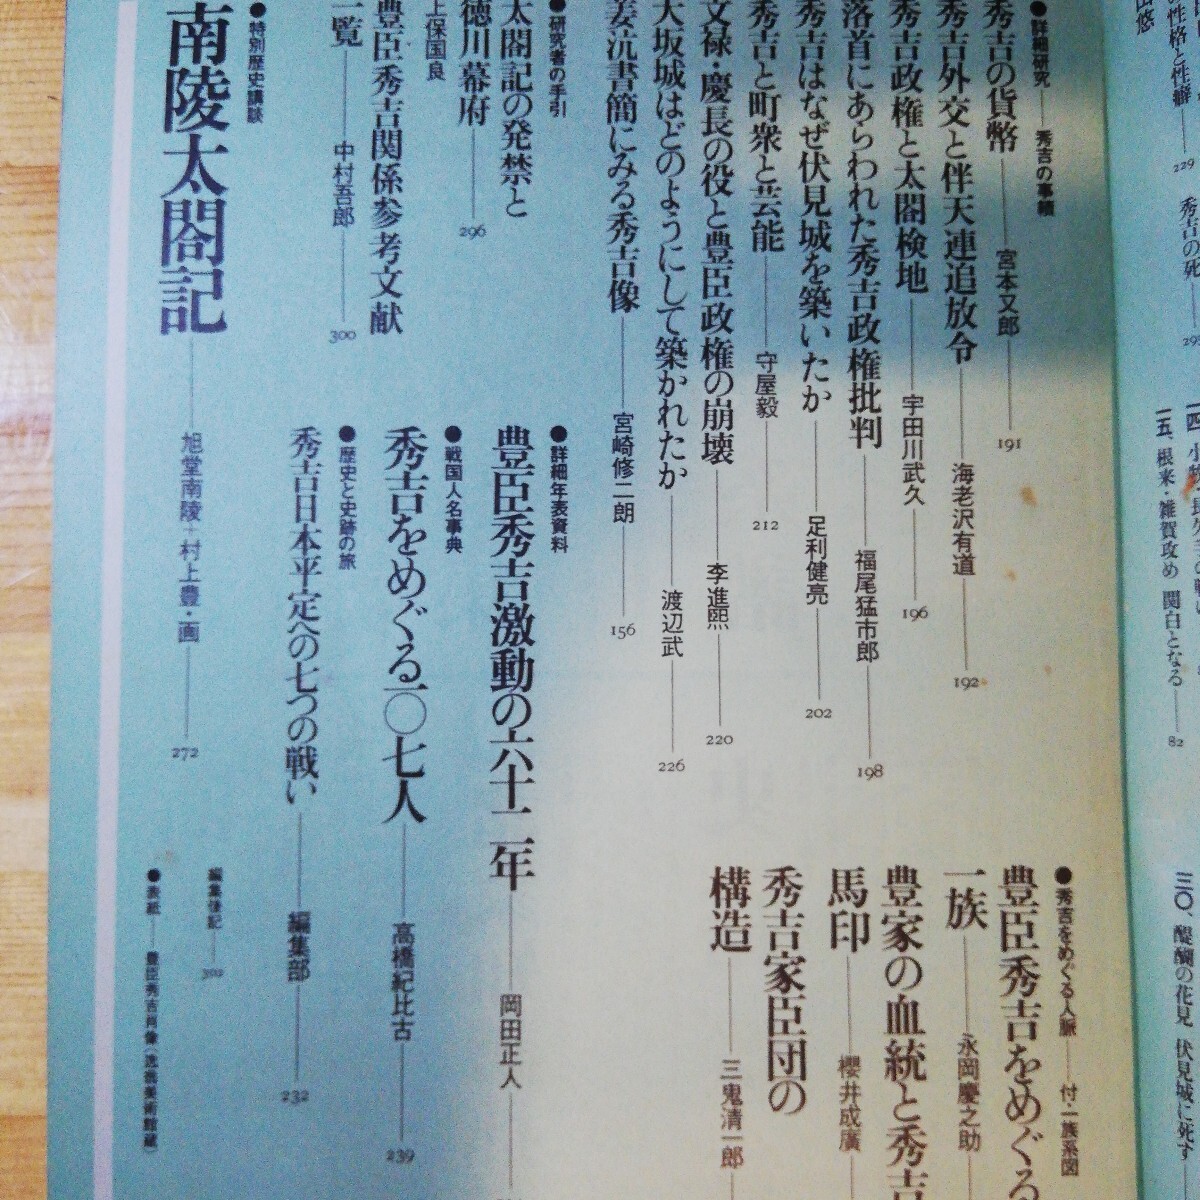 の性格と性癖
229
秀吉の死
295
一五、根来・雑賀攻め 関白となる
82
三〇、醍醐の花見 伏見城に死す
●詳細研究――秀吉の事績
秀吉の貨幣――宮本又郎――191
秀吉外交と伴天連追放令――海老沢有道――192
秀吉政権と太閤検地――宇田川武久――196
落首にあらわれた秀吉政権批判――福尾猛市郎――198
秀吉はなぜ伏見城を築いたか――足利健亮――202
秀吉と町衆と芸能――守屋毅――212
文禄・慶長の役と豊臣政権の崩壊――李進熙――220
大坂城はどのようにして築かれたか――渡辺武――226
姜沆書簡にみる秀吉像――宮崎修二朗――156
●研究者の手引
太閤記の発禁と
徳川幕府――296
上保国良
豊臣秀吉関係参考文献
一覧――中村吾郎――300
●特別歴史講談
南陵太閤記――旭堂南陵+村上豊・画――272
●詳細年表資料
豊臣秀吉激動の六十二年――岡田正人
●戦国人名事典
秀吉をめぐる一〇七人――高橋紀比古――239
●歴史と史跡の旅
秀吉日本平定への七つの戦い――編集部――232
●秀吉をめぐる人脈――付・一族系図
豊臣秀吉をめぐる
一族――永岡慶之助
豊家の血統と秀吉
馬印――櫻井成廣
秀吉家臣団の
構造――三鬼清一郎
編集後記
●表紙――豊臣秀吉肖像(逸翁美術館蔵)